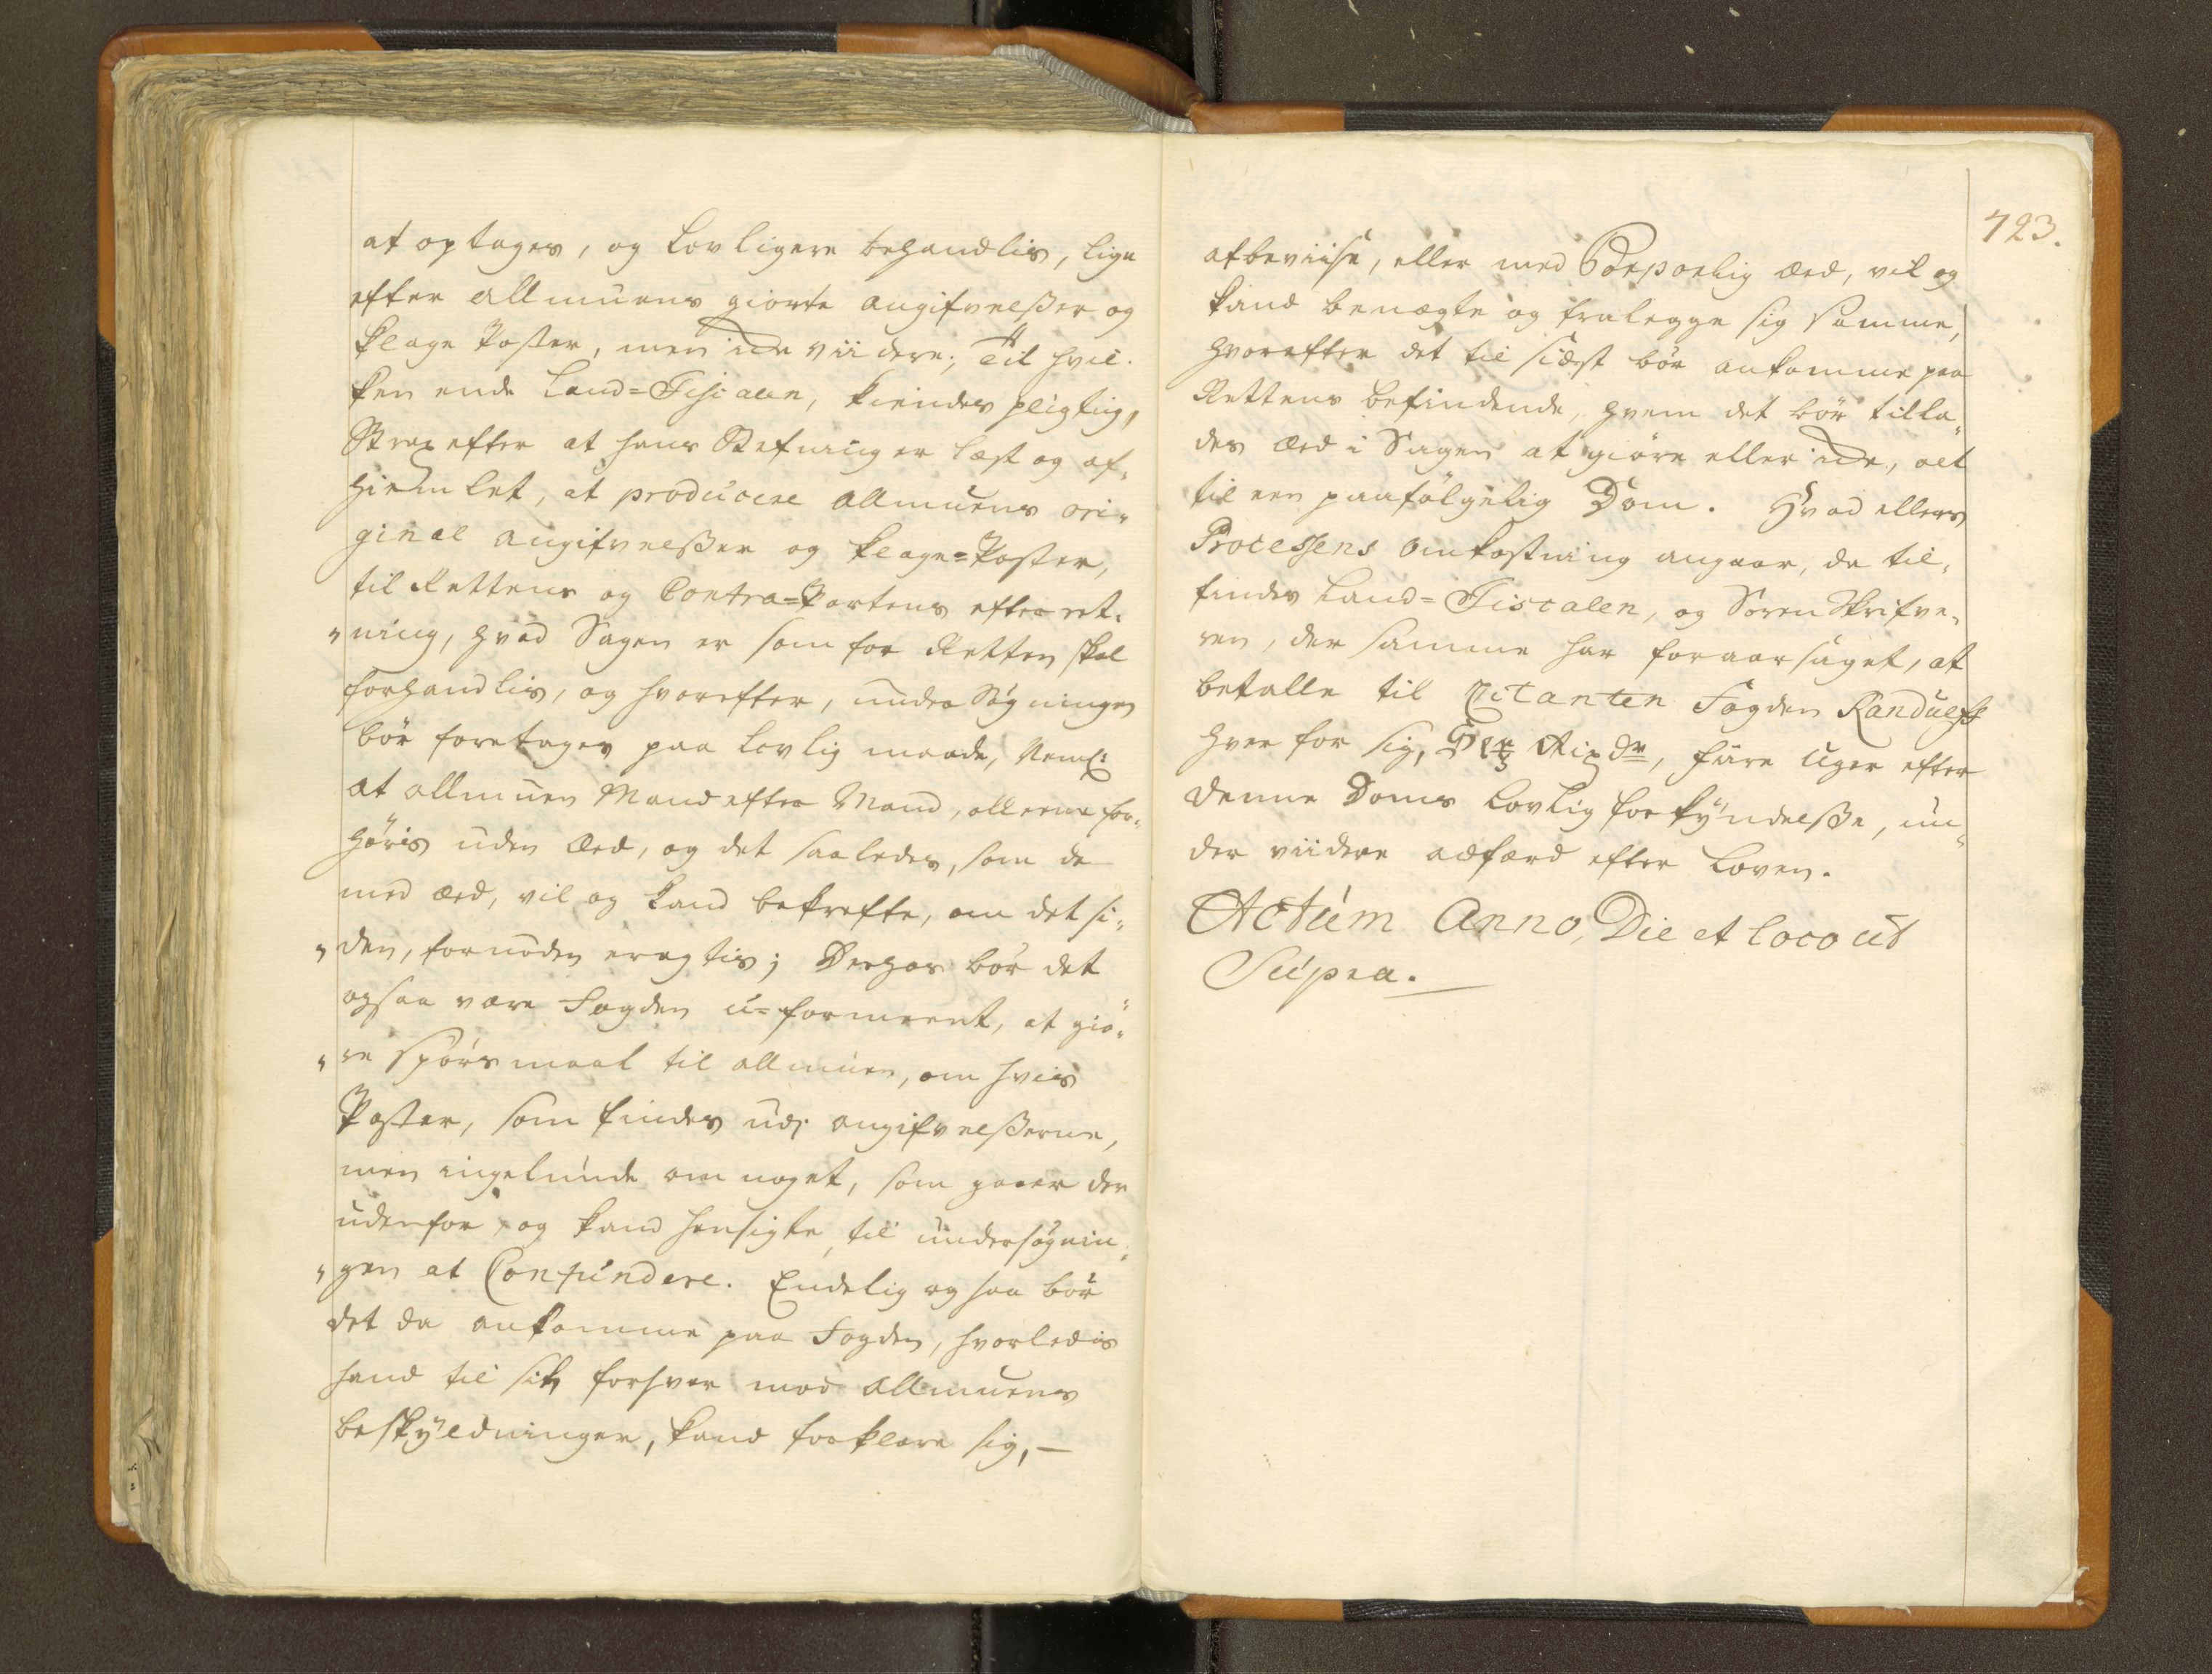 at optages, og Lovligere behandlis, lige
efter Allmuens giorte angifvelßer og
klage Poster, men icke viidere; Til hvil-
ken ende Land=Fiscalen, kiendes pligtig,
Strax efter at hans Stefning er læst og af-
hiemlet, at producere Allmuens ori-
ginal angifvelßer og klage=Poster,
til Rettens og Contra=Partens efterret-
ning, hvad Sagen er som for Retten skal
forhandlis, og hvorefter, undersøgningen
bör foretages paa lovlig maade, Neml:
at Allmuen Mand efter Mand, allerene for-
høris uden Æed, og det saaledes, som de
med Æed, vil og kand bekrefte, om det si-
den, fornöden eragtis; Derhos bör det
ogsaa være Fogden u=formeent, at giö-
re spörsmaal til Allmuen, om hvis
Poster, som findes udj angifvelßerne,
men ingelunde om noget, som gaaer der
udenfor, og kand hensigte, til undersøgnin-
gen at Confundere. Endelig og saa bör
det da ankomme paa Fogden, hvorledis
hand til sit forsvar mod Allmuens
beskyldninger, kand forklare sig, —
723.
at beviise, eller med Corporlig Æed, vil og
kand benægte og fralegge sig samme,
hvorefter det til sidst bör ankomme paa
Rettens befindende, hvem det bör tilla-
des Æed i Sagen at giöre eller icke, alt
til een paafölgelig Dom. Hvad ellers
Processens Omkostning angaar, da til-
findes Land=Fiscalen, og Sorenskrifve-
ren, der samme har foraarsaget, at
betalle til Citanten Fogden Randulff
hver for sig, Rixdr, fiire Uger efter
denne Doms Lovlig forkyndelße, un-
der viidere adfærd efter Loven.
Actum Anno, Die et loco ut
Supra.